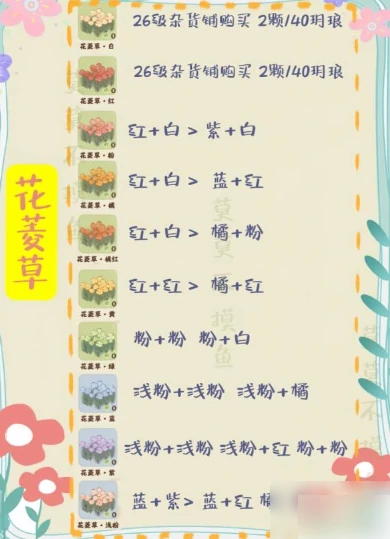 花菱草
花菱草·白
26级杂货铺购买 2颗/40玥琅
花菱草·红
26级杂货铺购买 2颗/40玥琅
花菱草·粉
红+白 > 紫+白
花菱草·橘
红+白 > 蓝+红
花菱草·橘红
红+白 > 橘+粉
花菱草·黄
红+红 > 橘+红
花菱草·绿
粉+粉 粉+白
花菱草·蓝
浅粉+浅粉 浅粉+橘
花菱草·紫
浅粉+浅粉 浅粉+红 粉+粉
花菱草·浅粉
蓝+紫 > 蓝+红
莫莫不摸鱼